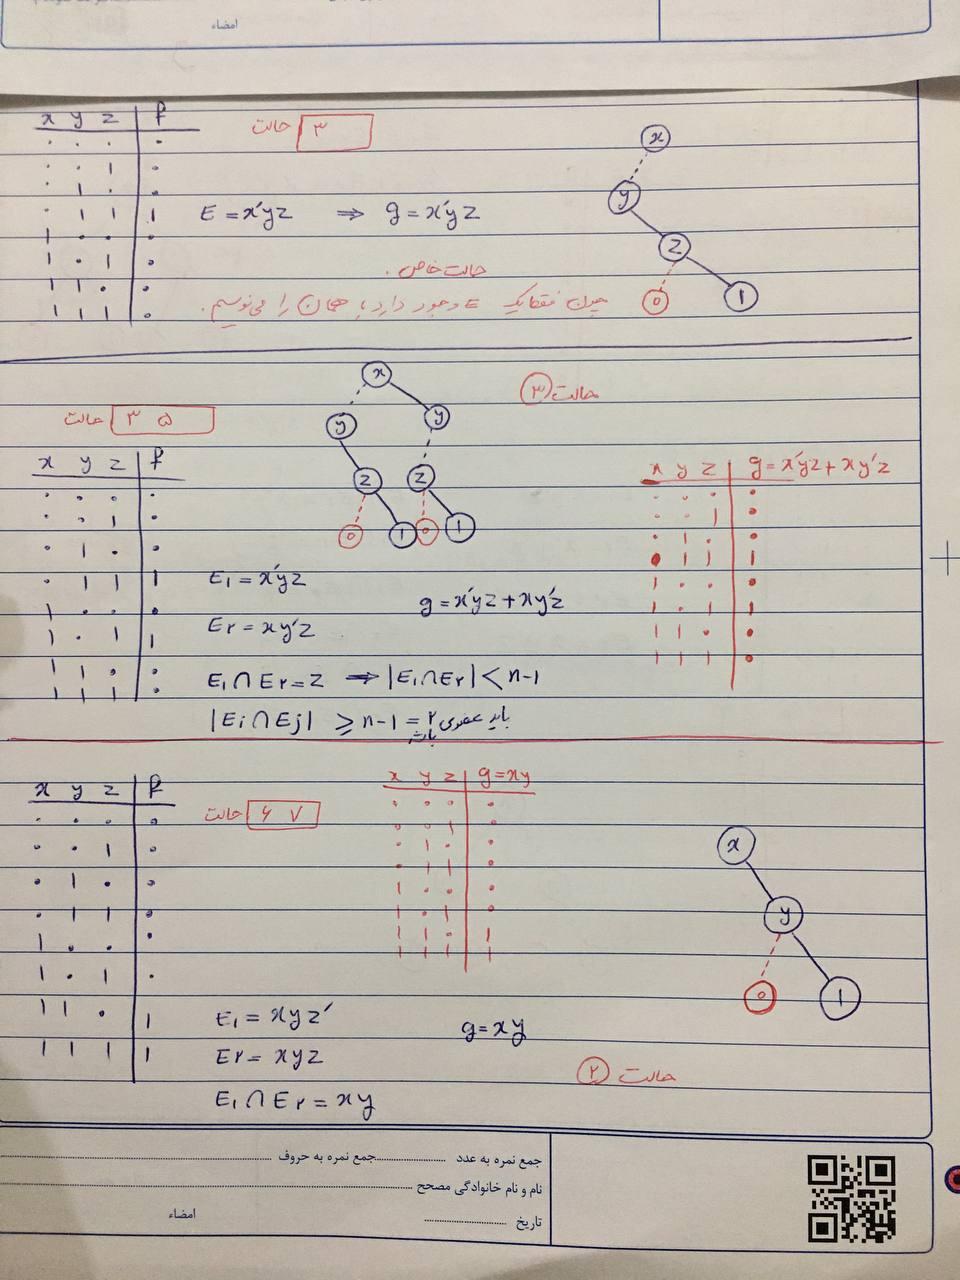 امضاء
x y z | f
حالت ۳
۰ ۰ ۰ | ۰
۰ ۰ ۱ | ۰
۰ ۱ ۰ | ۰
۰ ۱ ۱ | ۱
۱ ۰ ۰ | ۰
۱ ۰ ۱ | ۰
۱ ۱ ۰ | ۰
۱ ۱ ۱ | ۰
E = x'yz ⇒ g = x'yz
حالت خاص.
چون فقط یک E وجود دارد، همان را می‌نویسیم.
x
y
z
0 1
حالت ۳ ۵
x
y y
z z
0 1 0 1
حالت ۳
x y z | f
۰ ۰ ۰ | ۰
۰ ۰ ۱ | ۰
۰ ۱ ۰ | ۰
۰ ۱ ۱ | ۱
۱ ۰ ۰ | ۰
۱ ۰ ۱ | ۱
۱ ۱ ۰ | ۰
۱ ۱ ۱ | ۰
E۱ = x'yz
E۲ = xy'z
g = x'yz + xy'z
E۱ ∩ E۲ = z ⇒ |E۱ ∩ E۲| < n-1
|Ei ∩ Ej| ≥ n-1 = ۲ باید عضوی باشد
x y z | g = x'yz + xy'z
۰ ۰ ۰ | ۰
۰ ۰ ۱ | ۰
۰ ۱ ۰ | ۰
۰ ۱ ۱ | ۱
۱ ۰ ۰ | ۰
۱ ۰ ۱ | ۱
۱ ۱ ۰ | ۰
۱ ۱ ۱ | ۰
x y z | f
حالت ۶ ۷
۰ ۰ ۰ | ۰
۰ ۰ ۱ | ۰
۰ ۱ ۰ | ۰
۰ ۱ ۱ | ۰
۱ ۰ ۰ | ۰
۱ ۰ ۱ | ۰
۱ ۱ ۰ | ۱
۱ ۱ ۱ | ۱
x y z | g = xy
۰ ۰ ۰ | ۰
۰ ۰ ۱ | ۰
۰ ۱ ۰ | ۰
۰ ۱ ۱ | ۰
۱ ۰ ۰ | ۰
۱ ۰ ۱ | ۰
۱ ۱ ۰ | ۱
۱ ۱ ۱ | ۱
x
y
0 1
E۱ = xyz'
E۲ = xyz
g = xy
E۱ ∩ E۲ = xy
حالت ۲
جمع نمره به عدد جمع نمره به حروف
نام و نام خانوادگی مصحح
تاریخ امضاء